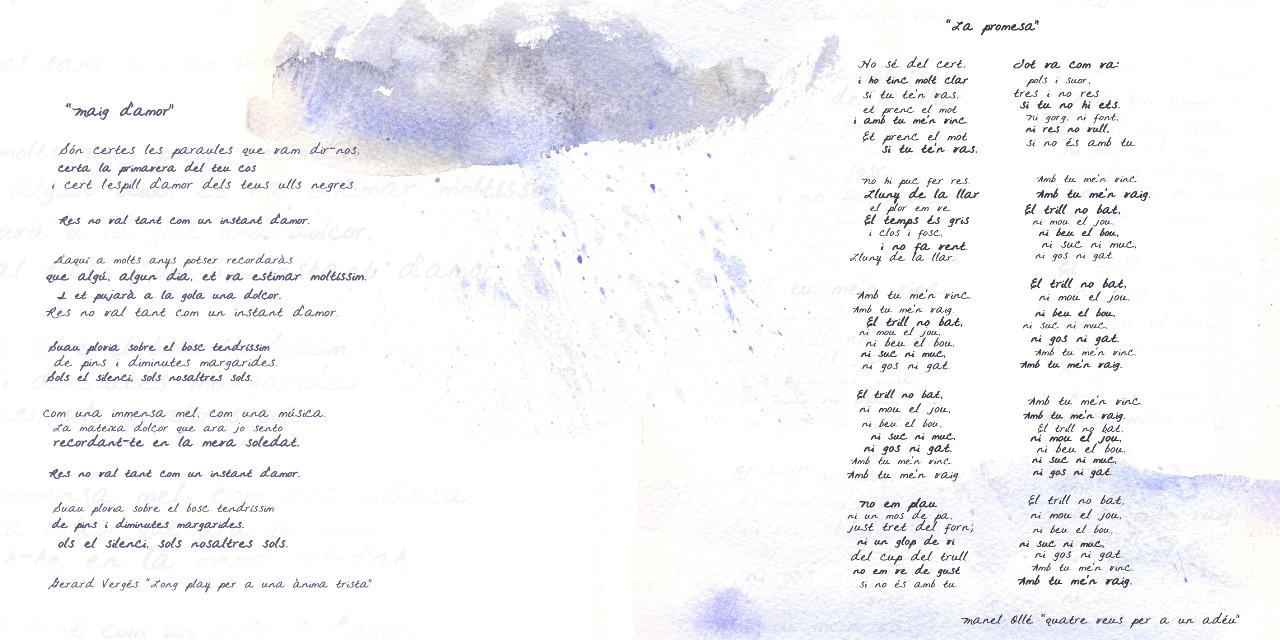 "Maig d'amor"
Són certes les paraules que vam dir-nos,
certa la primavera del teu cos
i cert lespill d'amor dels teus ulls negres.
Res no val tant com un instant d'amor.
Daquí a molts anys potser recordaràs
que algú, algun dia, et va estimar moltíssim.
I et pujarà a la gola una dolçor.
Res no val tant com un instant d'amor.
Suau plovia sobre el bosc tendríssim
de pins i diminutes margarides.
Sols el silenci, sols nosaltres sols.
Com una immensa mel, com una música.
La mateixa dolçor que ara jo sento
recordant-te en la meva soledat.
Res no val tant com un instant d'amor.
Suau plovia sobre el bosc tendríssim
de pins i diminutes margarides.
ols el silenci, sols nosaltres sols.
Gerard Vergés "Long play per a una ànima trista"
"La promesa"
No sé del cert.
i ho tinc molt clar
si tu te'n vas,
et prenc el mot
i amb tu me'n vinc.
Et prenc el mot
si tu te'n vas.
No hi puc fer res.
Lluny de la llar
el plor em ve
El temps és gris
i clos i fosc,
i no fa vent.
Lluny de la llar.
Amb tu me'n vinc.
Amb tu me'n vaig.
El trill no bat,
ni mou el jou,
ni beu el bou,
ni suc ni muc,
ni gos ni gat.
El trill no bat,
ni mou el jou,
ni beu el bou,
ni suc ni muc,
ni gos ni gat.
Amb tu me'n vinc.
Amb tu me'n vaig.
No em plau
ni un mos de pa,
just tret del forn;
ni un glop de vi
del cup del trull
no em ve de gust
si no és amb tu.
Tot va com va:
pols i suor,
tres i no res
si tu no hi ets.
Ni gorg, ni font,
ni res no vull,
si no és amb tu.
Amb tu me'n vinc.
Amb tu me'n vaig.
El trill no bat,
ni mou el jou,
ni beu el bou,
ni suc ni muc,
ni gos ni gat.
El trill no bat,
ni mou el jou,
ni beu el bou,
ni suc ni muc,
ni gos ni gat.
Amb tu me'n vinc.
Amb tu me'n vaig.
Amb tu me'n vinc.
Amb tu me'n vaig.
El trill no bat,
ni mou el jou,
ni beu el bou,
ni suc ni muc,
ni gos ni gat.
El trill no bat,
ni mou el jou,
ni beu el bou,
ni suc ni muc,
ni gos ni gat.
Amb tu me'n vinc.
Amb tu me'n vaig.
Manel Ollé "quatre veus per a un adéu"